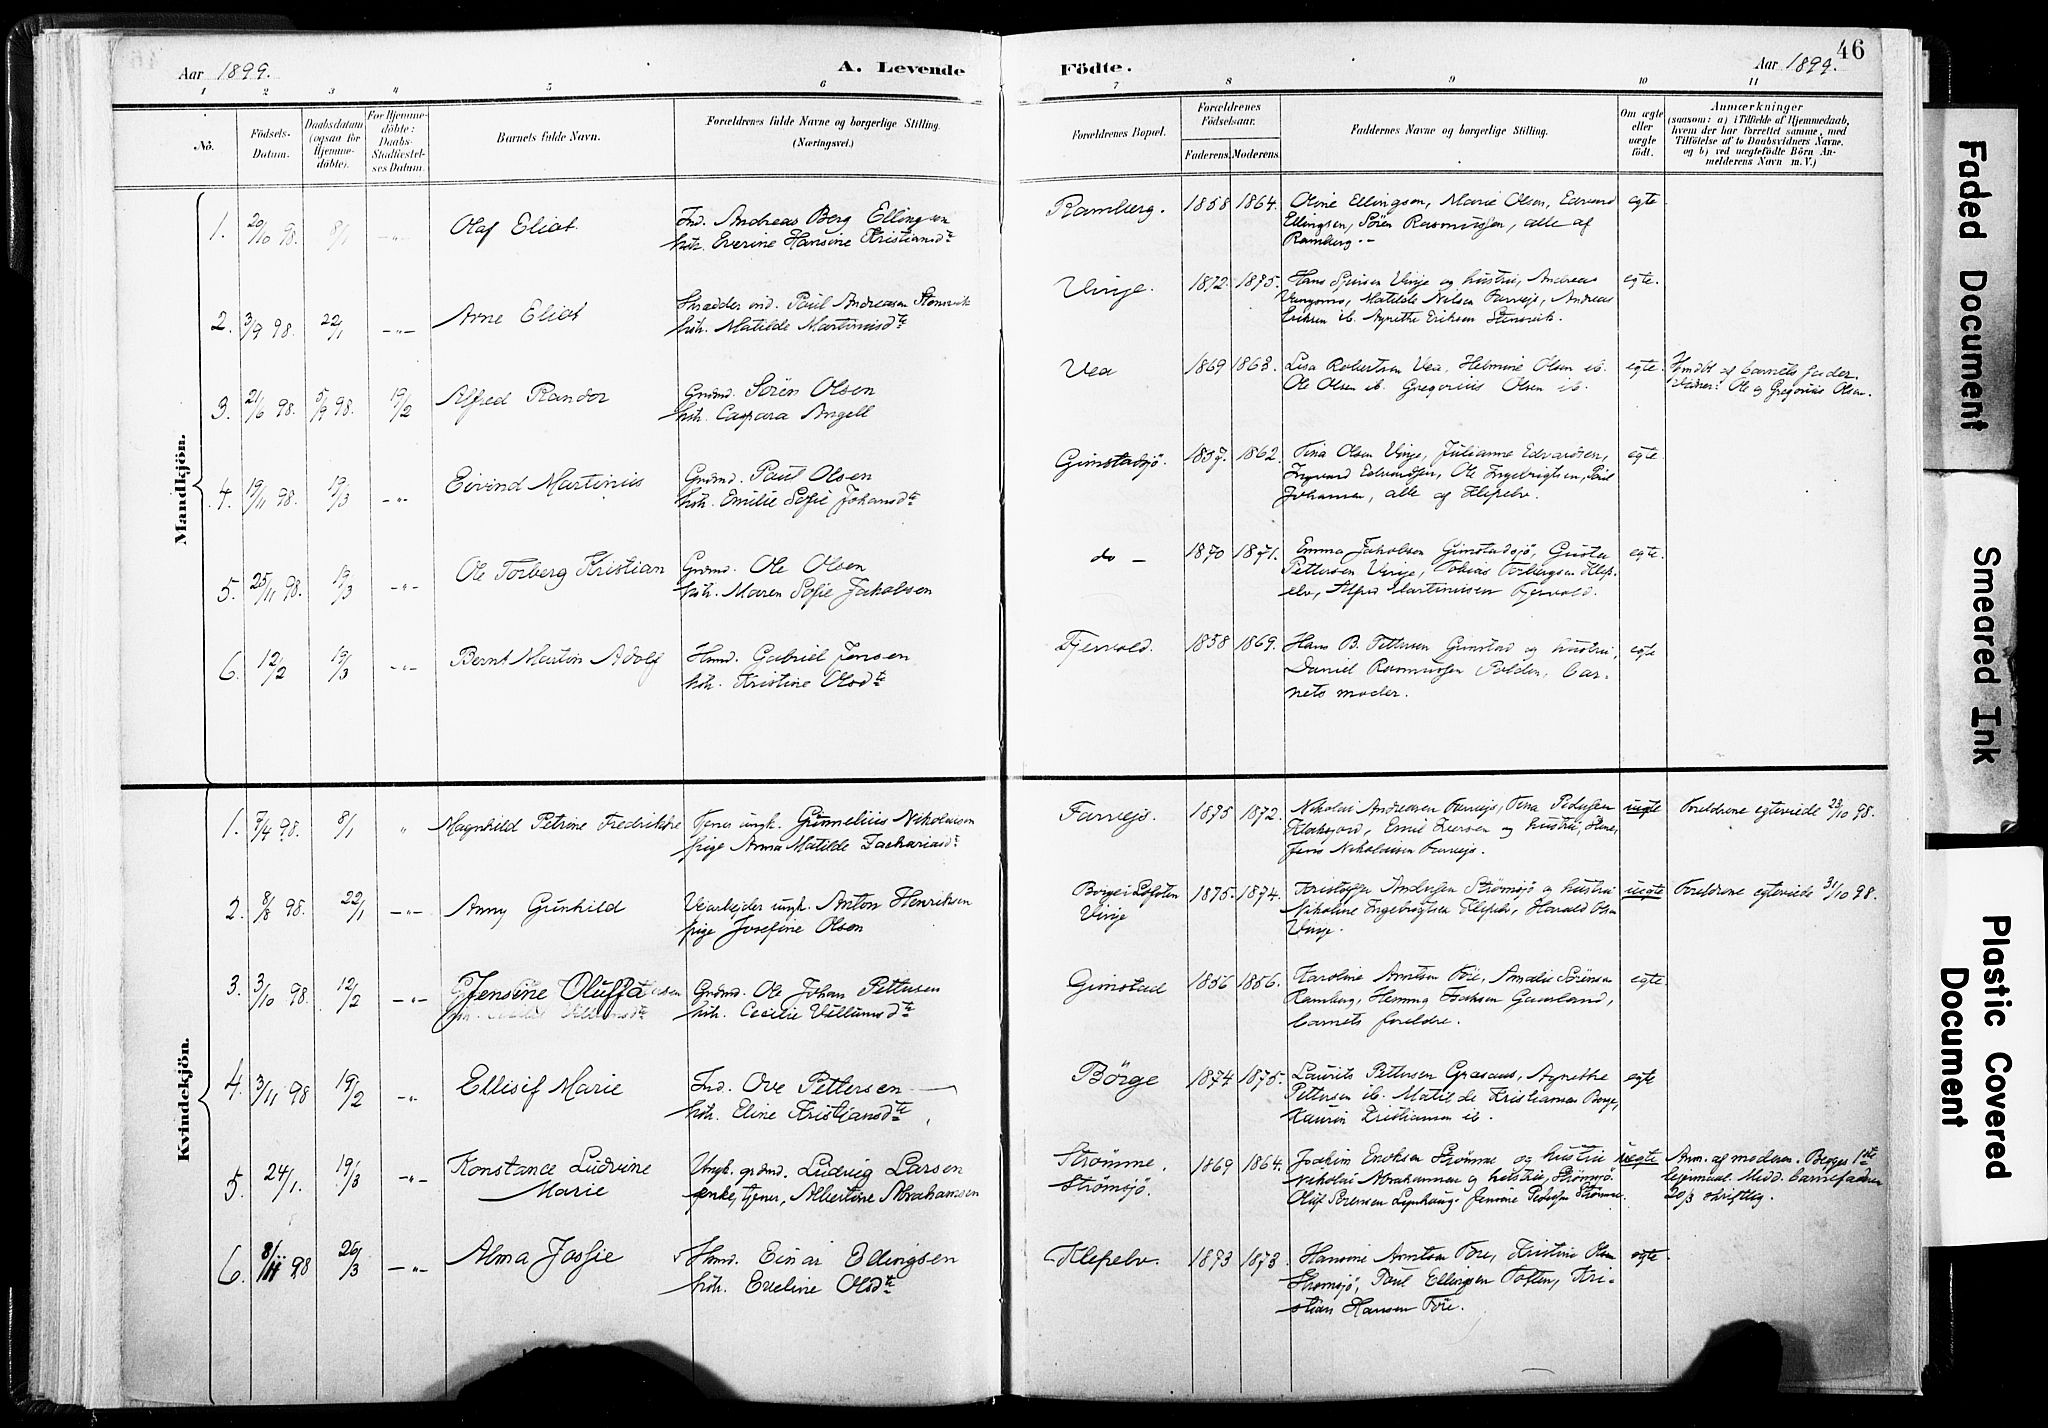 Aar 1899.
A. Levende
Födte.
Aar 1899.
46
1 2 3 4 5 6 7 8 9 10 11
Nö.
Födsels-
Datum.
Daabsdatum
(ogsaa for
Hjemme-
döbte).
For Hjemme-
döbte:
Daabs-
Stadfæstel-
ses Datum.
Barnets fulde Navn.
Forældrenes fulde Navne og borgerlige Stilling.
(Næringsvei.)
Forældrenes Bopæl.
Forældrenes
Födselsaar.
Faderens. Moderens.
Faddernes Navne og borgerlige Stilling.
Om ægte
eller
uægte
født.
Anmærkninger
(saasom: a) i Tilfælde af Hjemmedaab,
hvem der har forrettet samme, med
Tilföielse af to Daabsvidners Navne.
og b) ved uægtefödte Börn An-
melderens Navn m. V.)
Mandkjön.
1. 20/10 98. 8/1 -"- Olaf Eliot
Ind. Andreas Berg Ellingsen
hstr. Everine Hansine Kristiansdtr
Ramberg. 1858 1864. Oline Ellingsen, Marie Olsen, Edvard
Ellingsen, Sören Rasmussen, alle af
Ramberg.-
egte
2. 3/9 98. 22/1 -"- Arne Eliot
Skrædder ind. Paul Andreasen
hstr. Matilde Martinusdtr
Vinje. 1872 1875. Hans Vinje og hustru, Andreas
Matilde Nilsen Farvejs, Andreas
Eriksen ib. Agnethe Eriksen
egte.
3. 21/6 98. 5/9 98. 19/2 Alfred Randor
Grdmd. Sören Olsen
hstr. Caspara Angell
Vea 1869 1863. Lisa Robertsen Vea, Helmine Olsen ib.
Ole Olsen ib. Gregorius Olsen ib.
egte. Hjmdbt af barnets fader.
Vidner: Ole og Gregorius Olsen.
4. 19/11 98. 19/3 -"- Eivind Martinus
Grdmd. Paul Olsen
hstr. Emilie Sofie Johansdtr
Gimstadsjö. 1857. 1862. Tina Olsen Vinje, Julianne Edvardsen,
Ingvard Edvardsen, Ole Ingebrigtsen, Paul
Johansen, alle af Klepelv.
egte
5. 25/11 98. 19/3 -"- Ole Torberg Kristian
Grdmd. Ole Olsen
hstr. Maren Sofie Jakobsen
do - 1870 1871. Emma Jakobsen Gimstadsjö, Gusta
Pettersen Vinje, Tobias Torbergsen Klep-
elv, Alfred Martinusen Fjervold.
egte.
6. 12/2 19/3 -"- Bernt Martin Adolf
Hmd. Gabriel Jensen
hstr. Kristine Olsdtr
Fjervold. 1858 1869. Hans B. Pettersen Gimstad og hustru,
Daniel Rasmussen Polden, bar-
nets moder.
egte
Kvindekjön.
1. 7/4 98. 8/1 " Magnhild Petrine Fredrikke
Tjener ungk. Gunnelius Nikolaisen
pige Anna Matilde Zachariasdtr
Farvejs. 1875 1872. Nikolai Andreasen Farvejs, Tina Pedersen
Klaksjord, Emil Iversen og hustru, Stene,
Jens Nikolaisen Farvejs.
uegte Foreldrene egteviede 23/10 98.
2. 8/8 98. 22/1 -"- Anny Gunhild
Vejarbejder ungk. Anton Henriksen
pige Josefine Olsen
Borge i Lofoten
Vinje
1875. 1874. Kristoffer Andersen Strömsjö og hustru
Nikoline Ingebrigtsen Klepelv, Harald Olsen
Vinje.
uegte Foreldrene egteviede 31/10 98.
3. 3/10 98. 12/2 -"- Jensine Oluffa
Grdmd. Ole Johan Pettersen
hstr. Cecilie Villumsdtr
Gimstad 1856 1856. Karoline Arntsen Före, Amalie Sörensen
Ramberg, Henning Isaksen Gaarland,
barnets foreldre.
egte.
4. 3/11 98 19/2 -"- Ellisif Marie
Ind. Ove Pettersen
hstr. Eline Kristiansdtr
Börge 1874 1875. Laurits Pettersen Grasaas, Agnethe
Pettersen ib. Matilde Kristiansen Borge,
Kaurin Kristiansen ib.
egte
5. 24/1. 19/3 -"- Konstance Ludvine
Marie
Ungk. grdmd. Ludvig Larsen
enke, tjener, Albertine Abrahamsen
Strömme.
Strömsjö.
1869 1864. Joakim Enoksen Strömme og hustru
Nikolai Abrahamsen og hustru, Strömsjö.
Oluf Sörensen Lynghaug. Jensine Pedersen Strömme.
uegte Anm. af moderen. Begges 1ste
lejermaal. Medd. barnefaderen
20/3 skriftlig.
6. 8/11 98 26/3 -"- Alma Jossie
Hmd. Einar Ellingsen
hstr. Eveline Olsdtr
Klepelv. 1873 1873. Hansine Arntsen Före, Kristine Olsen
Stromsjö, Paul Ellingsen Toften, Kri-
stian Hansen Före.
egte.
Faded Document
Smeared Ink
Plastic Covered
Document